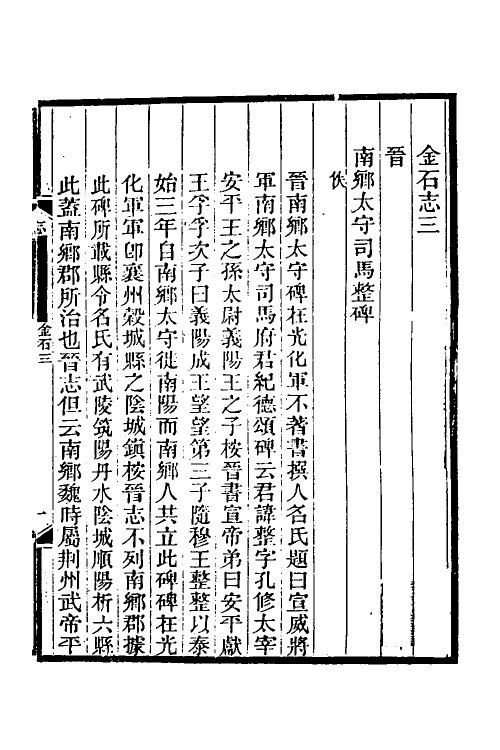 金石志三
晉
南鄉太守司馬整碑
佚
晉南鄉太守碑在光化軍不著書撰人名氏題曰宣威將
軍南鄉太守司馬府君紀德頌碑云君諱整字孔修太宰
安平王之孫太尉義陽王之子桉晉書宣帝弟曰安平獻
王孚孚次子曰義陽成王望望第三子隨穆王整整以泰
始三年自南鄉太守徙南陽而南鄉人共立此碑碑在光
化軍軍卽襄州穀城縣之陰城鎮桉晉志不列南鄉郡據
此碑所載縣令名氏有武陵筑陽丹水陰城順陽析六縣
此蓋南鄉郡所治也晉志但云南鄉魏時屬荆州武帝平
志
金石三
一